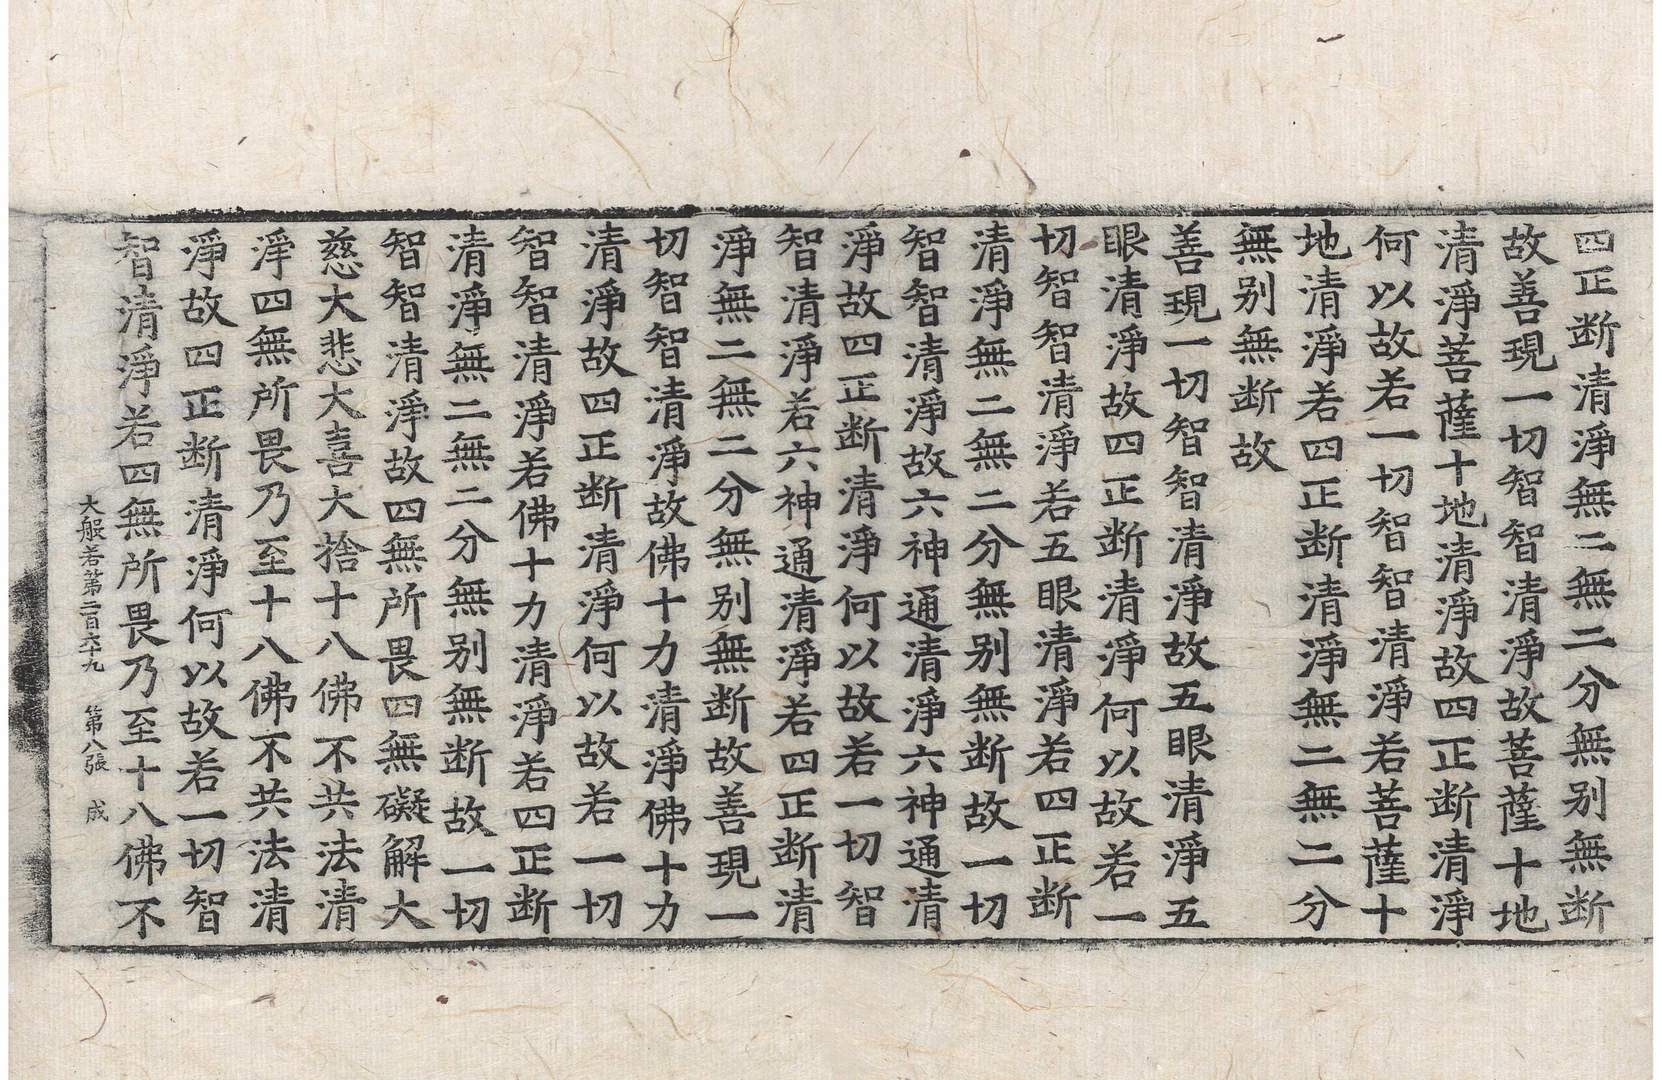 四正断清淨無二無二分無別無断
故善現一切智智清淨故菩薩十地
清淨菩薩十地清淨故四正断清淨
何以故若一切智智清淨若菩薩十
地清淨若四正断清淨無二無二分
無別無断故
善現一切智智清淨故五眼清淨五
眼清淨故四正断清淨何以故若一
切智智清淨若五眼清淨若四正断
清淨無二無二分無別無断故一切
智智清淨故六神通清淨六神通清
淨故四正断清淨何以故若一切智
智清淨若六神通清淨若四正断清
淨無二無二分無別無断故善現一
切智智清淨故佛十力清淨佛十力
清淨故四正断清淨何以故若一切
智智清淨若佛十力清淨若四正断
清淨無二無二分無別無断故一切
智智清淨故四無所畏四無礙解大
慈大悲大喜大捨十八佛不共法清
淨四無所畏乃至十八佛不共法清
淨故四正断清淨何以故若一切智
智清淨若四無所畏乃至十八佛不
大般若第二百六十九 第八張 成